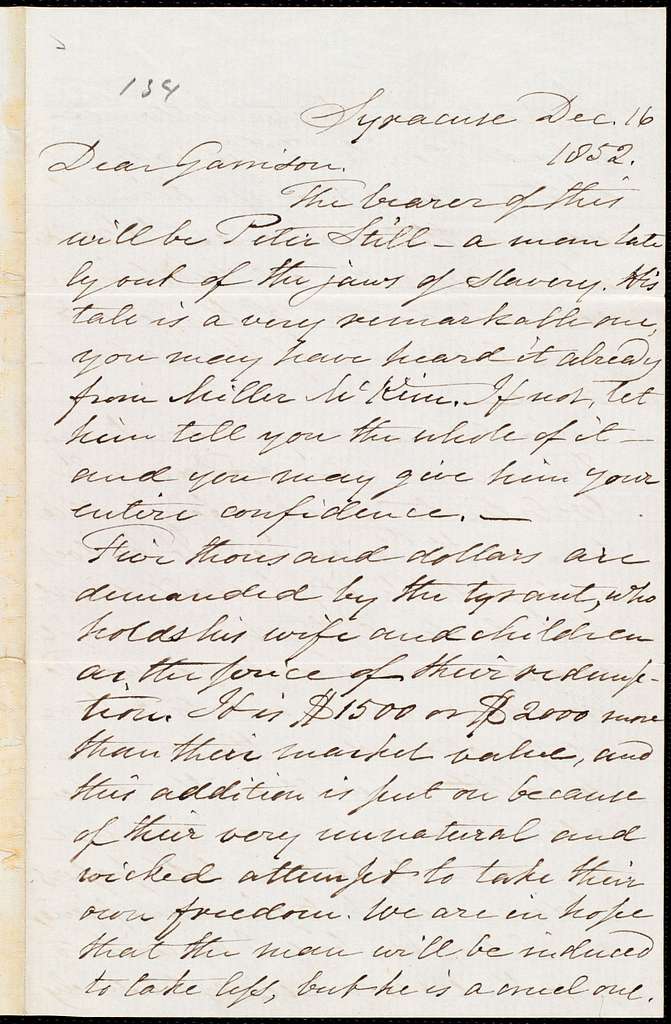 134
Syracuse Dec. 16
1852.
Dear Garrison.
The bearer of this
will be Peter Still – a man late
ly out of the jaws of slavery. His
tale is a very remarkable one,
you may have heard it already
from Miller McKim. If not, let
him tell you the whole of it –
and you may give him your
entire confidence. –
Five thousand dollars are
demanded by the tyrant, who
holds his wife and children
as the price of their redemp-
tion. It is $1500 or $2000 more
than their market value, and
this addition is put on because
of their very unnatural and
wicked attempt to take their
own freedom. We are in hope
that the man will be induced
to take less, but he is a cruel one.